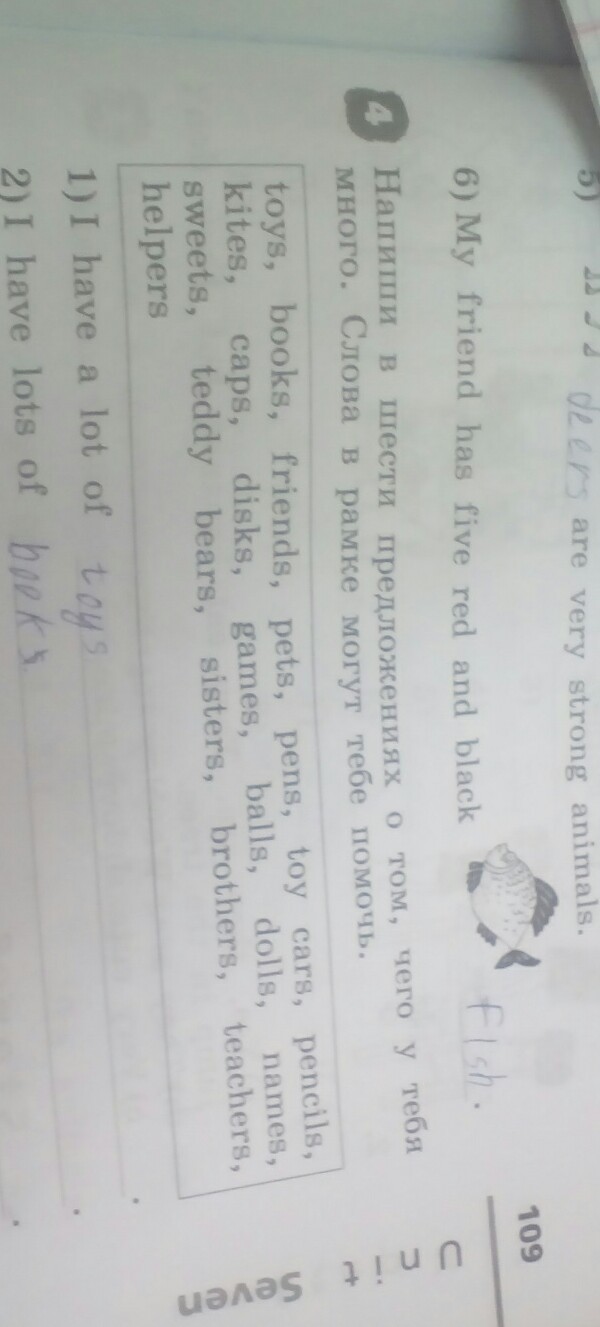 5) deers are very strong animals.
6) My friend has five red and black fish.
4 Напиши в шести предложениях о том, чего у тебя
много. Слова в рамке могут тебе помочь.
toys, books, friends, pets, pens, toy cars, pencils,
kites, caps, disks, games, balls, dolls, names,
sweets, teddy bears, sisters, brothers, teachers,
helpers
1) I have a lot of toys.
2) I have lots of books.
109
Unit
Seven